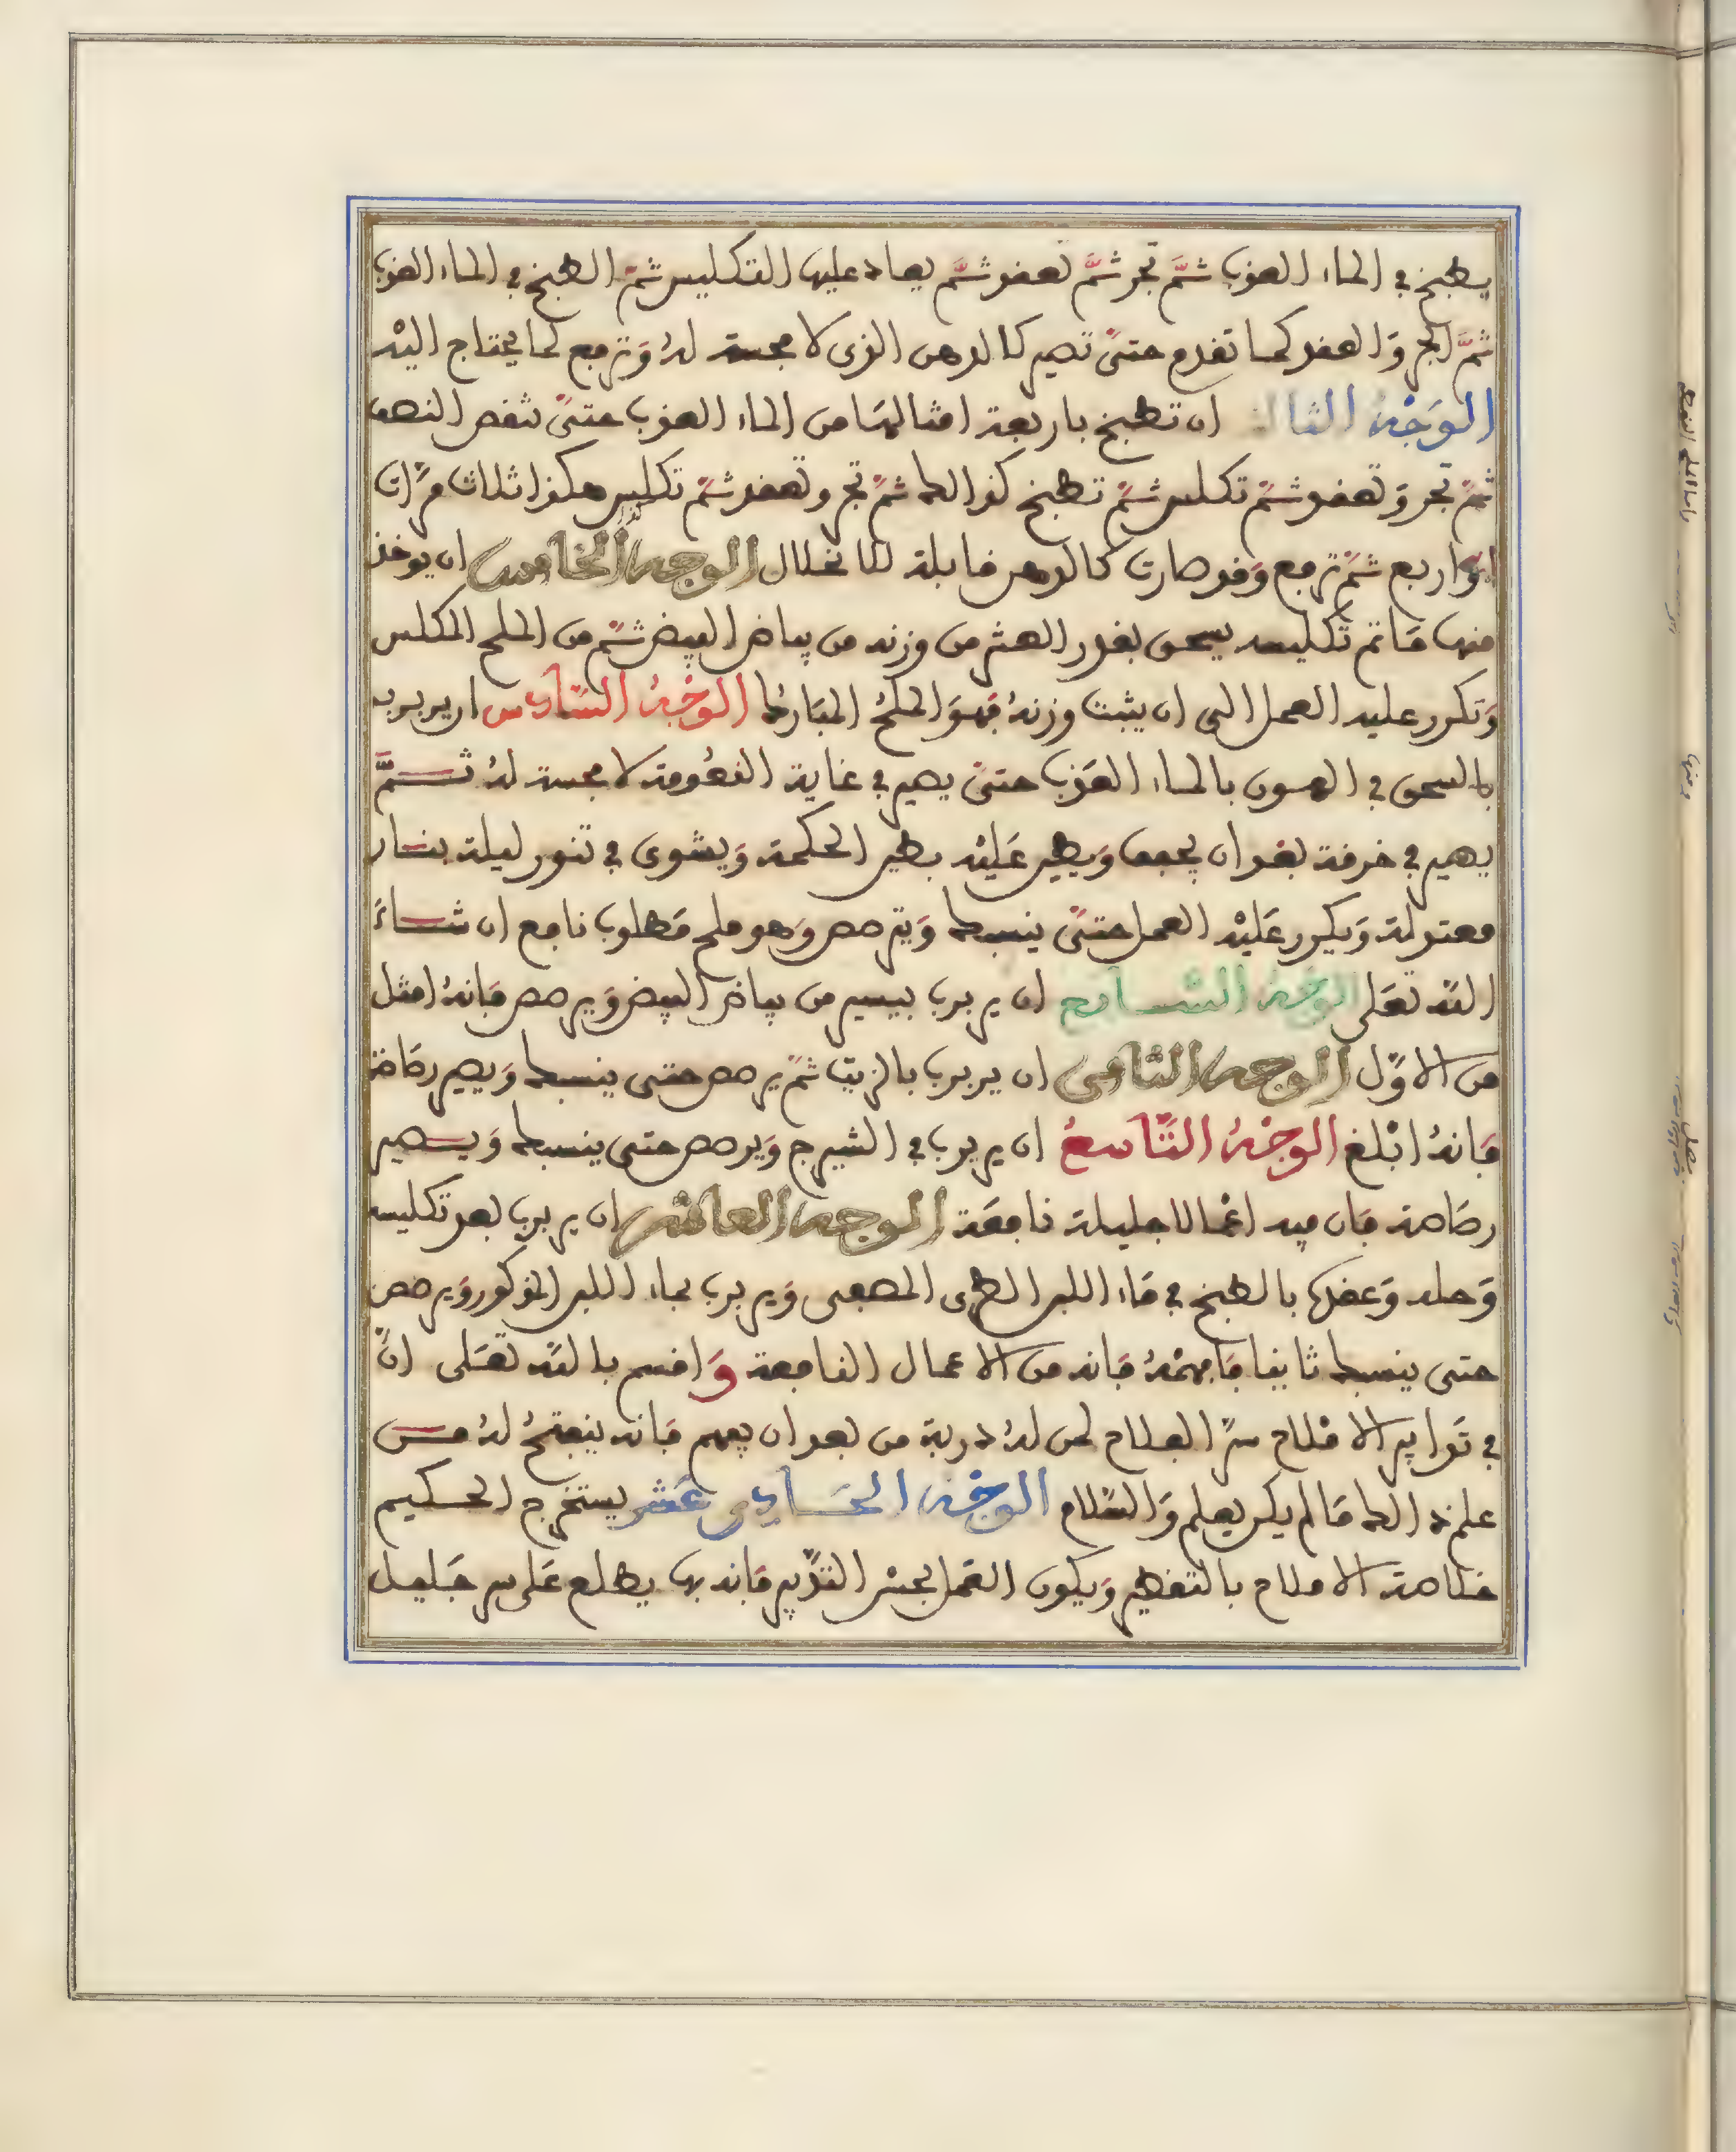 يطبخ في الماء العذب ثمَّ تجر ثمَّ تعقد ثمَّ يعاد عليها التكليس ثمّ الطبخ في الماء العذب
ثمَّ الجر وَالعقد كما تقدم حتىّ تصير كالدهن الذى لا مجسة لهُ وَترفع لما يحتاج اليْه
الوَجْهُ الثالث ان تطبخ باربعة امثالهَا من الماء العذب حتىّ ينقص النصف
ثمّ تجر وَتعقد ثمّ تكلس ثمّ تطبخ كذالك ثمّ تجر وتعقد ثمّ تكليس هكذا ثلاث مرَّات
اوْ اربع ثمّ ترفع وَقد صارت كالدهن قابلة للانحلال الوجه الخامس ان يوخذ
منها مَا تم تكليسه يسحق بقدر العشر من وزنه من بياض البيض ثمّ من الملح المكلس
وَتكرر عليه العمل الى ان يثبت وزنهُ فهوَ الملحُ المبَارك الوجْهُ السَّادس ان يربرب
بالسحق في الهسون بالماء العَذب حتىّ يصير في غاية النعُومة لا مجسة لهُ ثـــمَّ
يصير في خرقة بعد ان يجفف وَيطين عَليْه بطين الحكمة وَيشوى في تنور ليلة بنــار
معتدلة وَيكرر عَليْه العمل حتىّ ينسبك وَيترصص وَهو ملح مَطلوب نافع ان شــاءَ
اللّه تعَلى الوَجْهُ السّــابع ان يربرب بيسير من بياض البيض وَيرصص فَانهُ امثل
من الاوَّل الوجه الثامن ان يربرب بالزيت ثمّ يرصص حتى ينسبك وَيصير رصَاصة
فَانهُ ابْلغ الوجْهُ التَّاسعُ ان يربرب في الشيرج وَيرصص حتى ينسبك وَيــصير
رصَاصة فَان فيه اعْمالا جليلة نافعَة الوجه العاشر ان يربرب بعد تكليسه
وَحله وَعقده بالطبخ في مَاء اللبن الطرى المصفى وَيربرب بماء اللبن المذكور وَيرصص
حتى ينسبك ثانيا فَافهمْهُ فَانه من الاعمال النافعة وَاقسم باللّه تعَلى انَّ
في تَدابير الامْلاح سرَّ الفلاح لمن لهُ دربة من بعد ان يفهم فَانه ينفتحُ لهُ مــن
علم ذالك مَا لم يكن يعلم وَالسَّلام الوجْهُ الحَــادي عَشر يستخرج الحــكيم
خلاصة الاملاح بالتقطير وَيكون العَمل بحسْن التدَّبير فَانه بها يطلع عَلى سر جَليــل